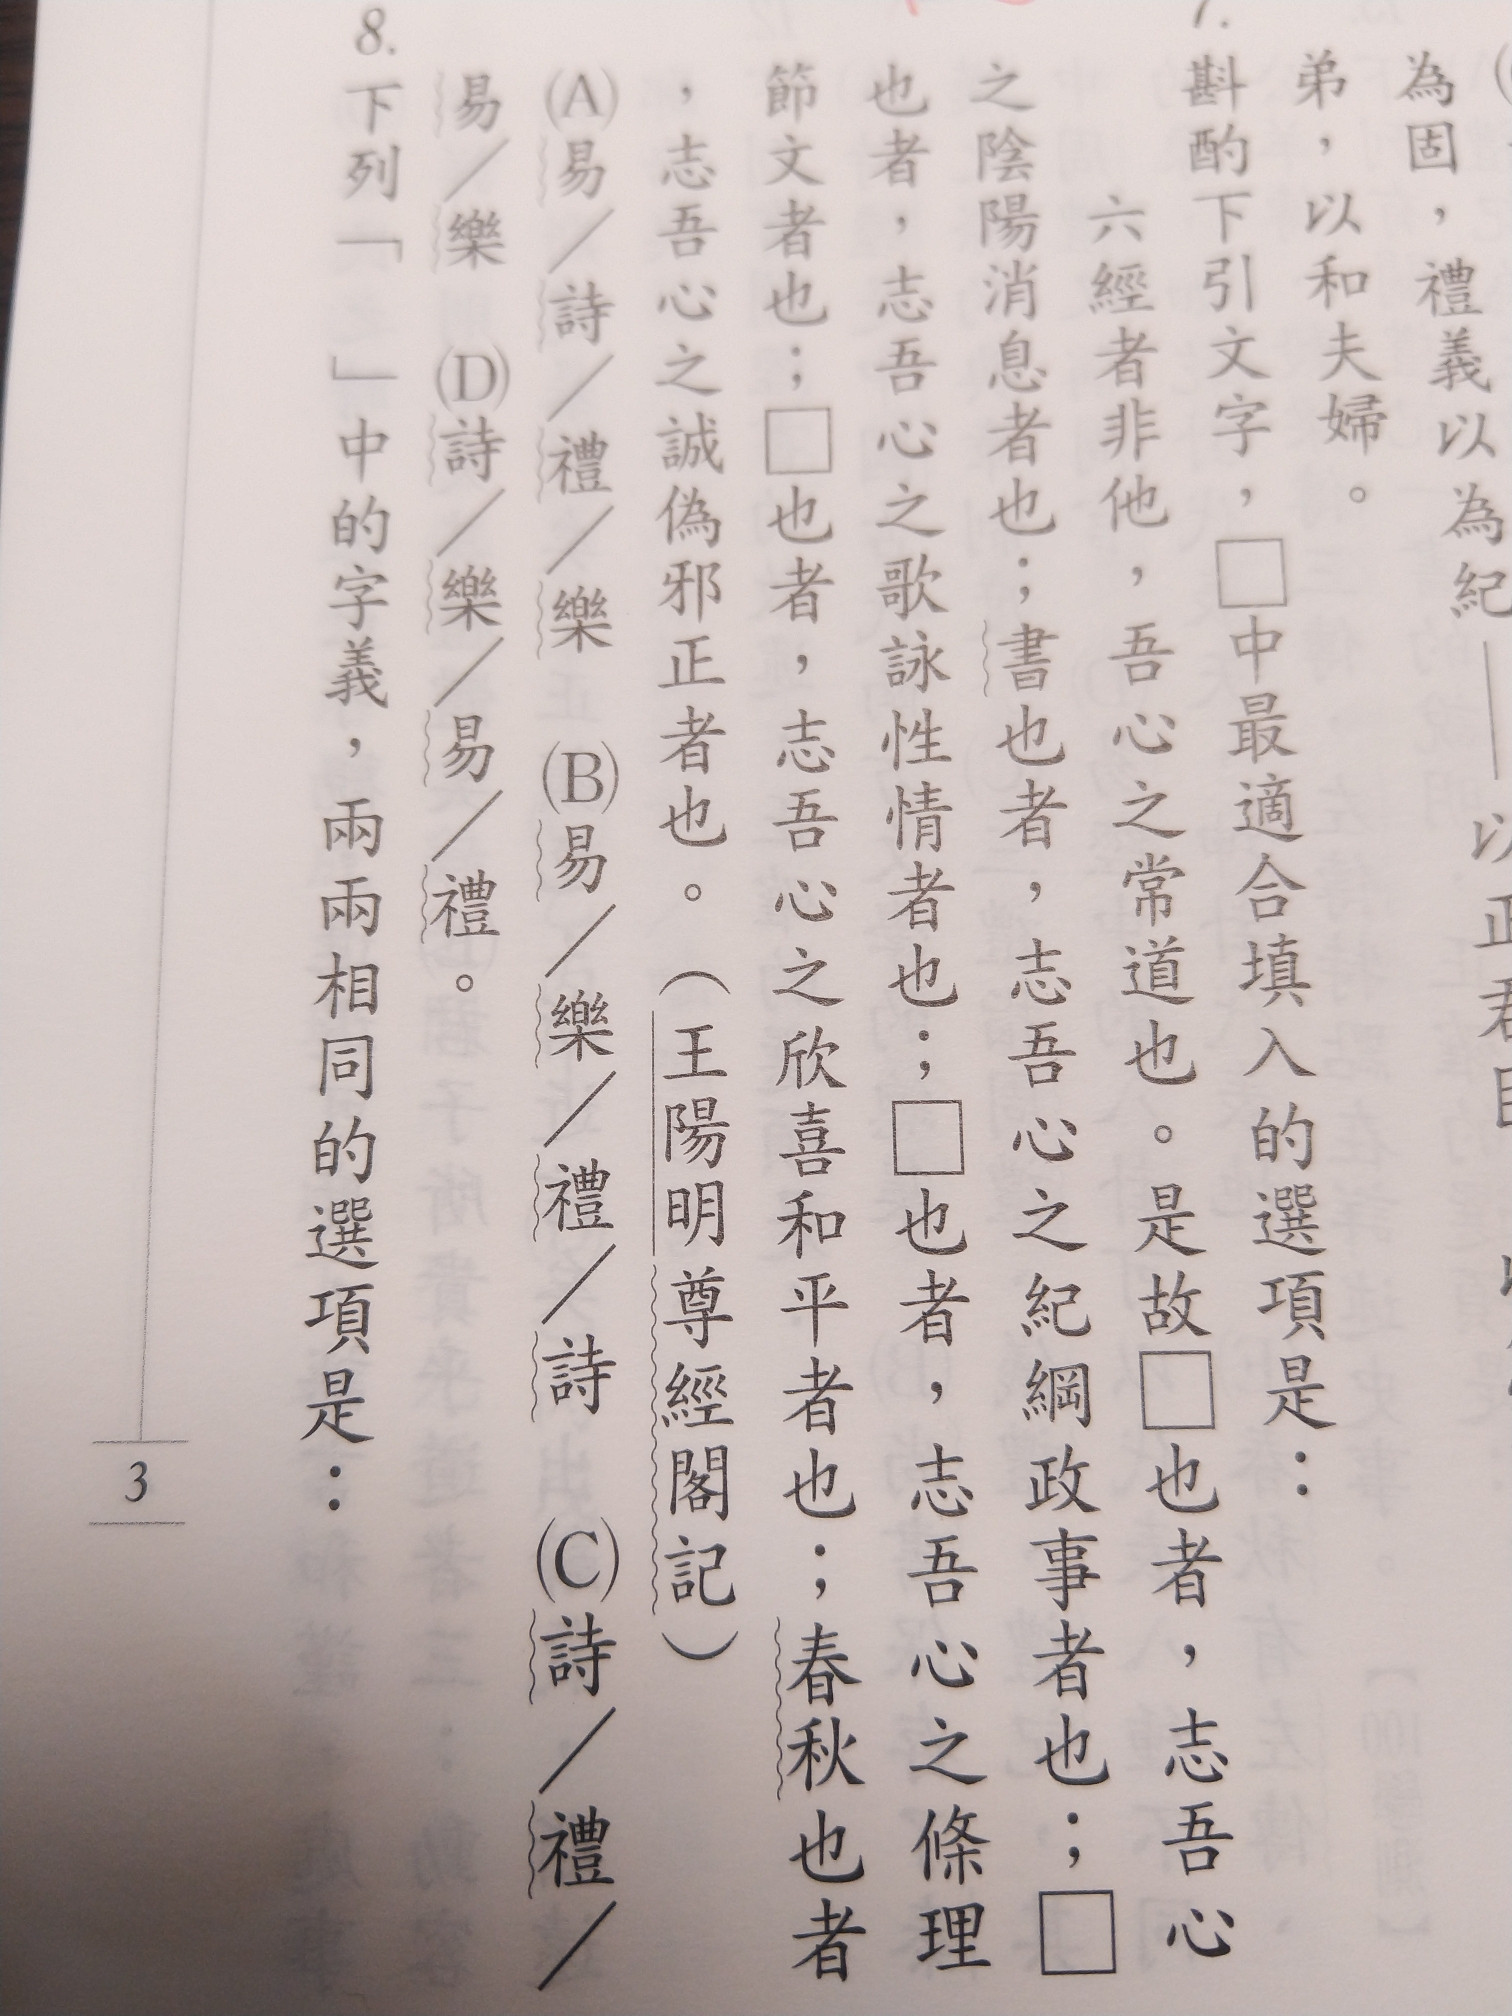 為固，禮義以為紀——以正君
弟，以和夫婦。
7.
斟酌下引文字，□中最適合填入的選項是：
六經者非他，吾心之常道也。是故□也者，志吾心
之陰陽消息者也；書也者，志吾心之紀綱政事者也；□
也者，志吾心之歌詠性情者也；□也者，志吾心之條理
節文者也；□也者，志吾心之欣喜和平者也；春秋也者
，志吾心之誠偽邪正者也。（王陽明尊經閣記）
(A)易／詩／禮／樂　(B)易／樂／禮／詩　(C)詩／禮／
易／樂　(D)詩／樂／易／禮。
8.
下列「　」中的字義，兩兩相同的選項是：
3